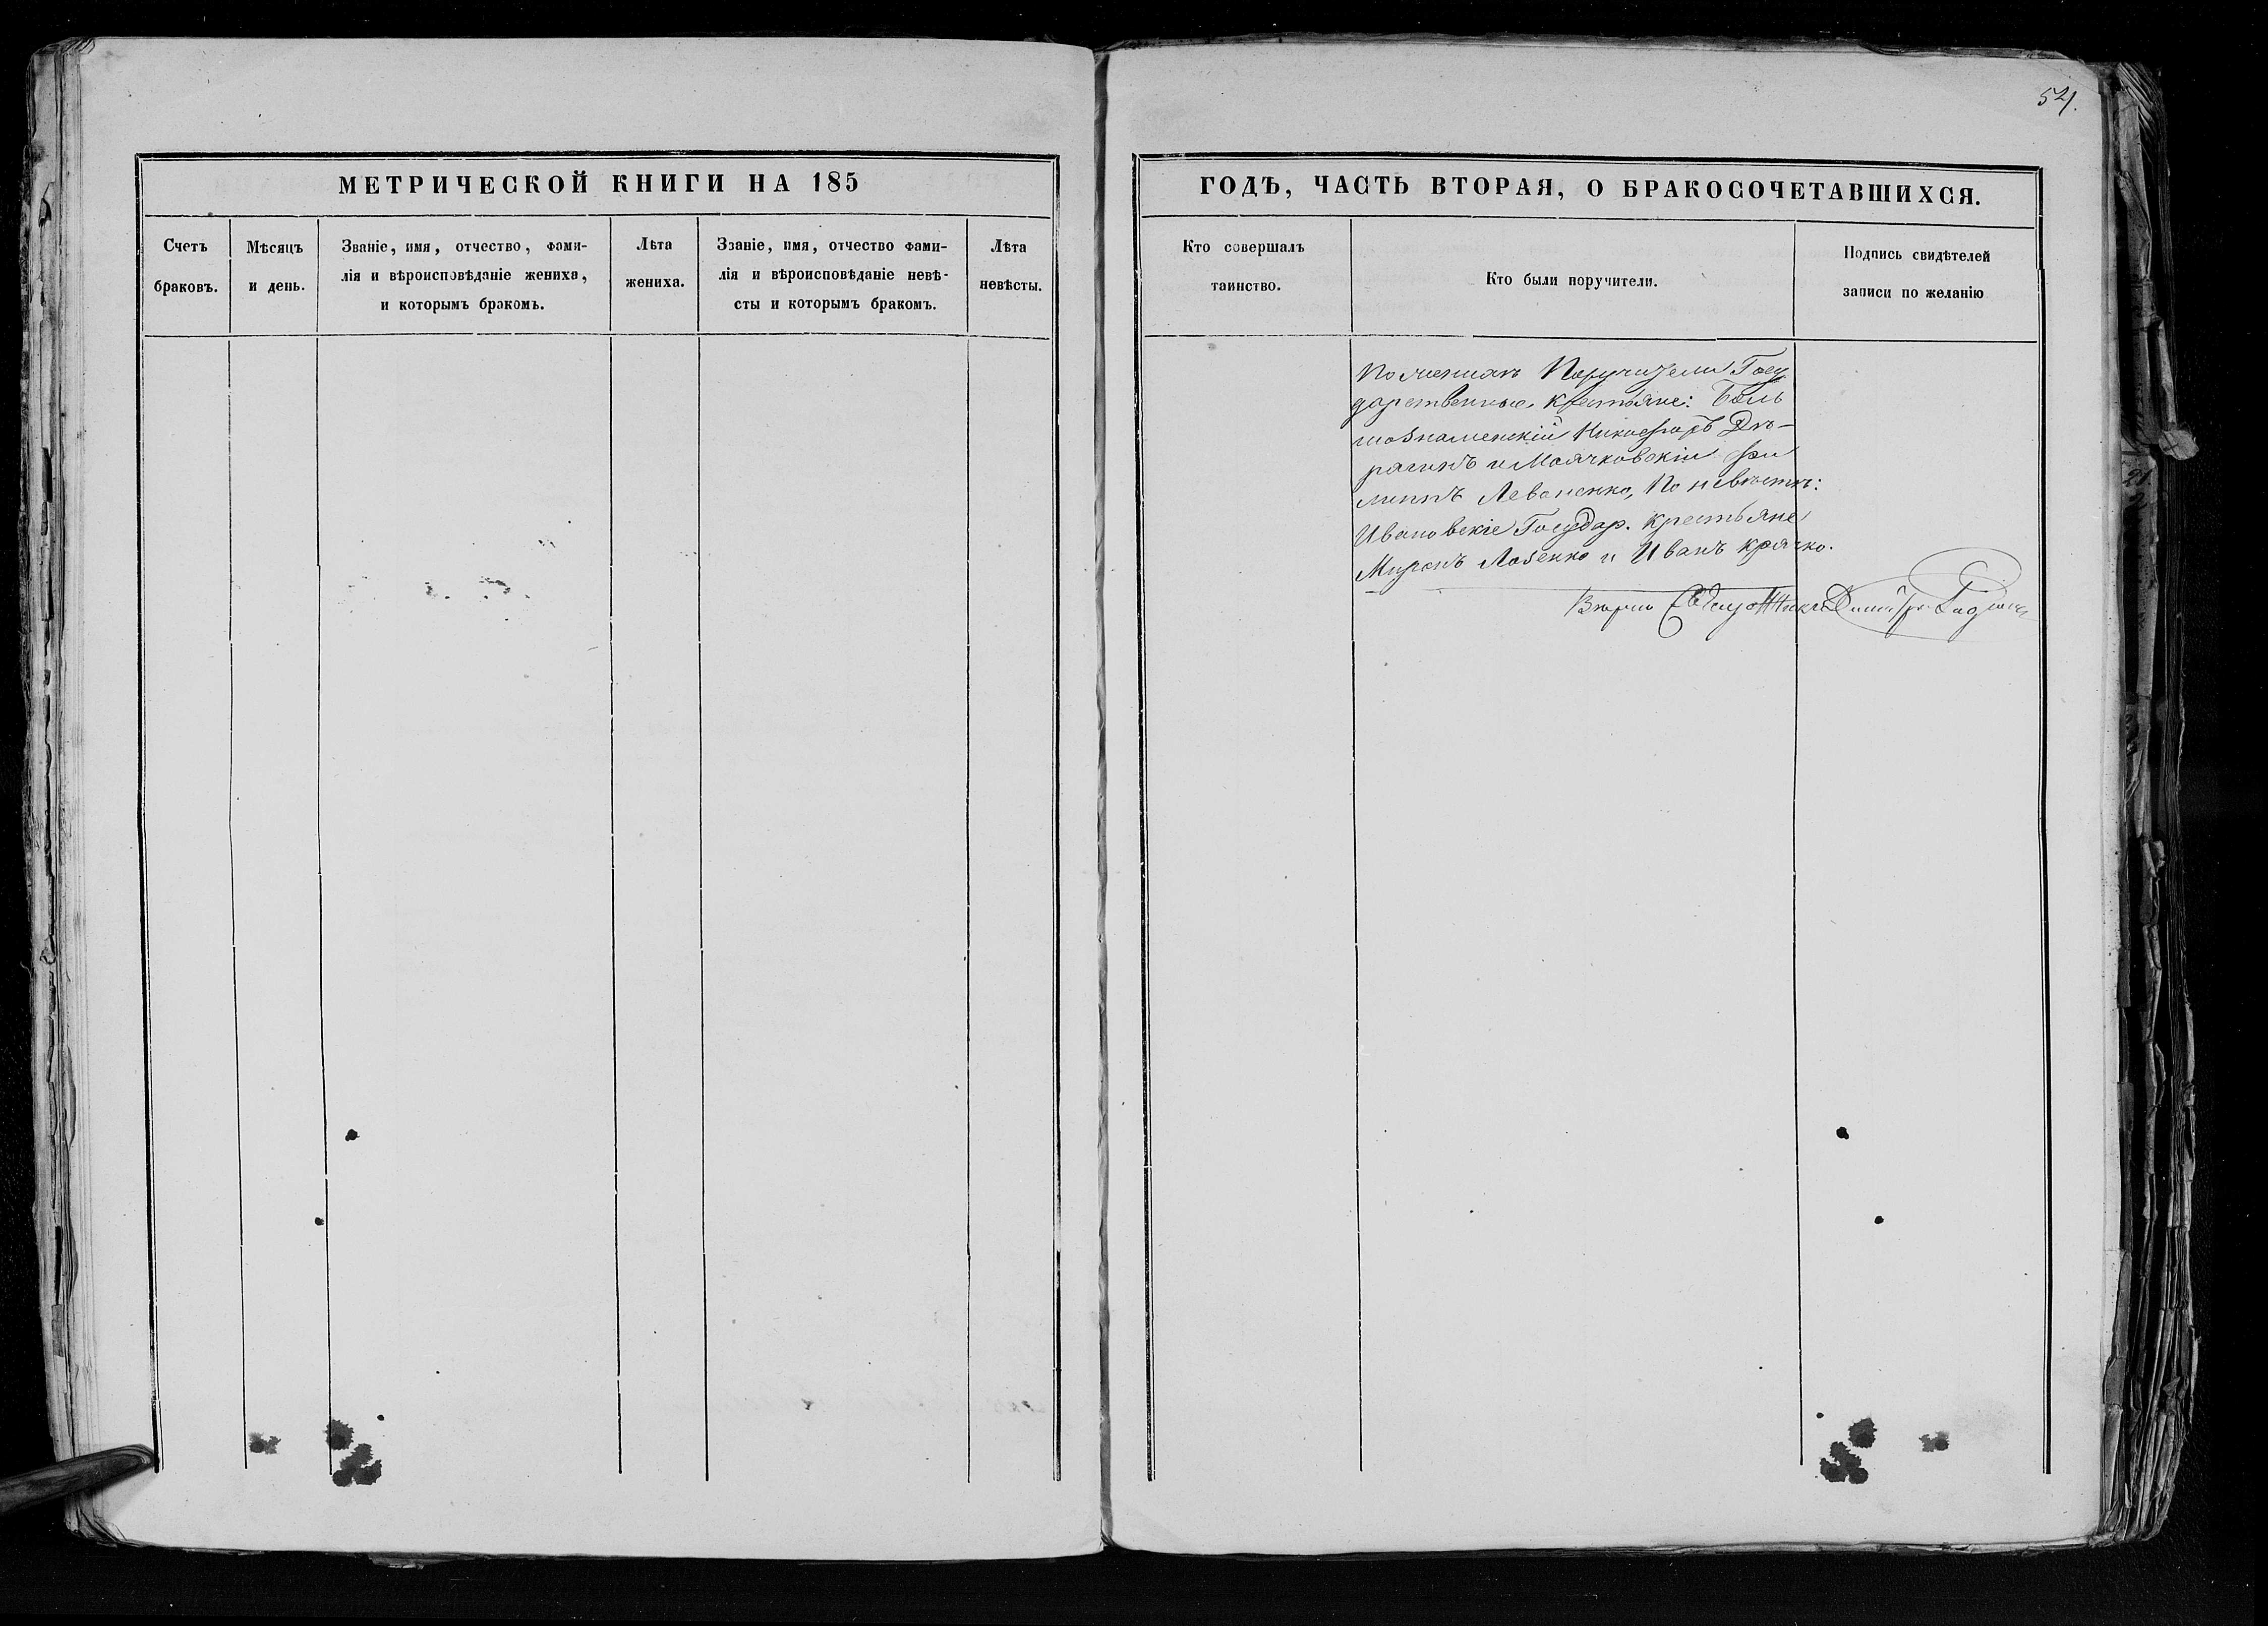 54.
МЕТРИЧЕСКОЙ КНИГИ НА 185
Счетъ браковъ.
Мѣсяцъ и день.
Званіе, имя, отчество, фами-
лія и вѣроисповѣданіе жениха,
и которымъ бракомъ.
Лѣта жениха.
Званіе, имя, отчество фами-
лія и вѣроисповѣданіе невѣ-
сты и которымъ бракомъ.
Лѣта невѣсты.
ГОДЪ, ЧАСТЬ ВТОРАЯ, О БРАКОСОЧЕТАВШИХСЯ.
Кто совершалъ
таинство.
Кто были поручители.
Подпись свидѣтелей
записи по желанію
По женихѣ Поручители Госу
дарственные крестьяне: Боль
шознаменскій Никифоръ
и Маячковскій Фи
липпъ Леваненко, По невѣстѣ:
Ивановскіе Государ. крестьяне
Миронъ Лозенко и Иванъ Крячко.